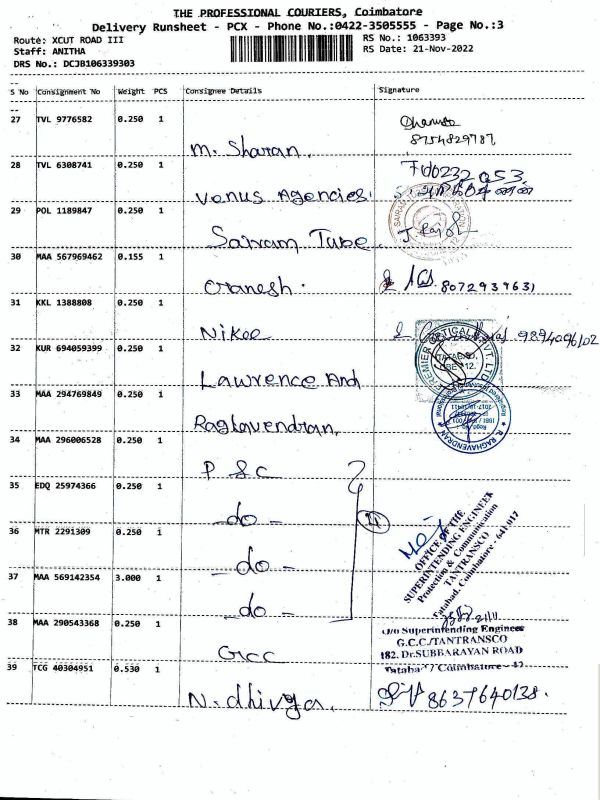 THE PROFESSIONAL COURIERS, Coimbatore
Delivery Runsheet - PCX - Phone No.:0422-3505555 - Page No.:3
Route: XCUT ROAD III RS No.: 1063393
Staff: ANITHA RS Date: 21-Nov-2022
DRS No.: DCJB106339303
S No Consignment No Weight PCS Consignee Details Signature
27 TVL 9776582 0.250 1
8754829787
M. Sharan.
28 TVL 6308741 0.250 1
Venus Agencies.
29 POL 1189847 0.250 1
Sairam Tube
30 MAA 567969462 0.155 1
Oranesh. 8072939631
31 KKL 1388808 0.250 1
Nikee 9894096102
32 KUR 694059399 0.250 1
PREMIER OPTICAL PVT. LTD
TATABAD,
CBE-12.
Lawrence And
33 MAA 294769849 0.250 1
Raghavendran.
R. RAGHAVENDRAN
34 MAA 296006528 0.250 1
P & C
35 EDQ 25974366 0.250 1
-do-
36 MTR 2291309 0.250 1
-do-
37 MAA 569142354 3.000 1
-do-
OFFICE OF THE
SUPERINTENDING ENGINEER
Protection & Communication
TANTRANSCO
Tatabad, Coimbatore - 641 012
38 MAA 290543368 0.250 1
GCC
O/o Superintending Engineer
G.C.C./TANTRANSCO
182, Dr.SUBBARAYAN ROAD
Tatabad / Coimbatore - 12
39 TCG 40304951 0.530 1
N. dhivya. 8637640138.